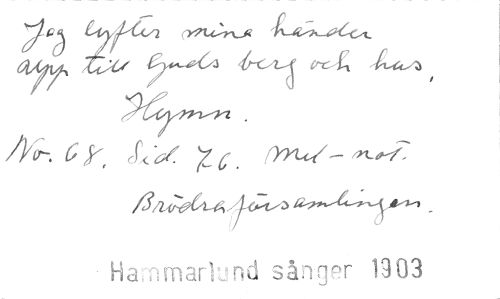 Jag lyfter mina händer
upp till Guds berg och hus,
Hymn.
No. 68. Sid. 76. Mel-not.
Brödraförsamlingen.
Hammarlund sånger 1903